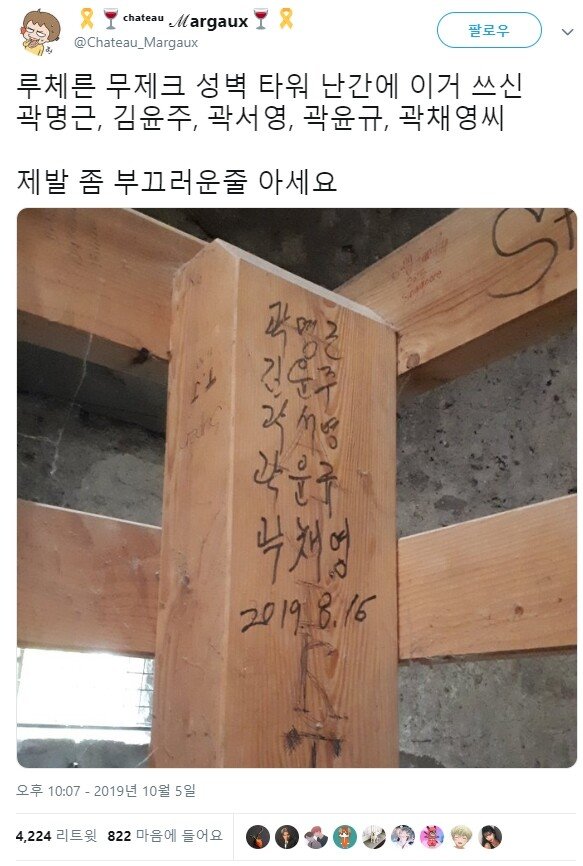 chateau Margaux
@Chateau_Margaux
팔로우
루체른 무제크 성벽 타워 난간에 이거 쓰신
곽명근, 김윤주, 곽서영, 곽윤규, 곽채영씨
제발 좀 부끄러운줄 아세요
곽명근
김윤주
곽서영
곽윤규
곽채영
2019.8.16
오후 10:07 - 2019년 10월 5일
4,224 리트윗 822 마음에 들어요